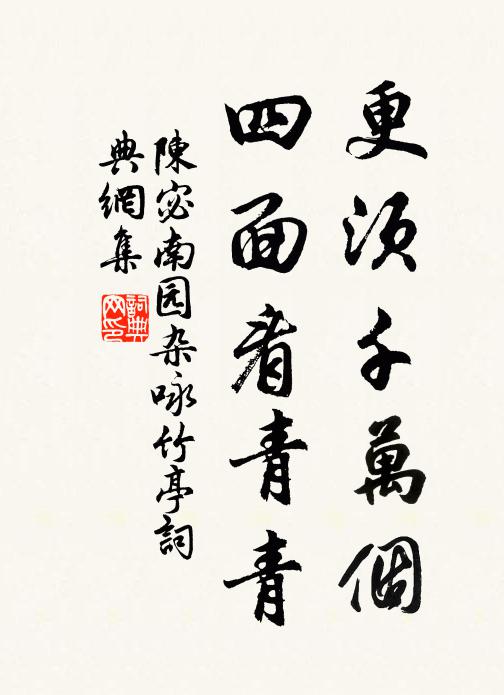 更須千萬個
四面看青青
陳宓南园杂咏竹亭詞
典網集
詞典
网印